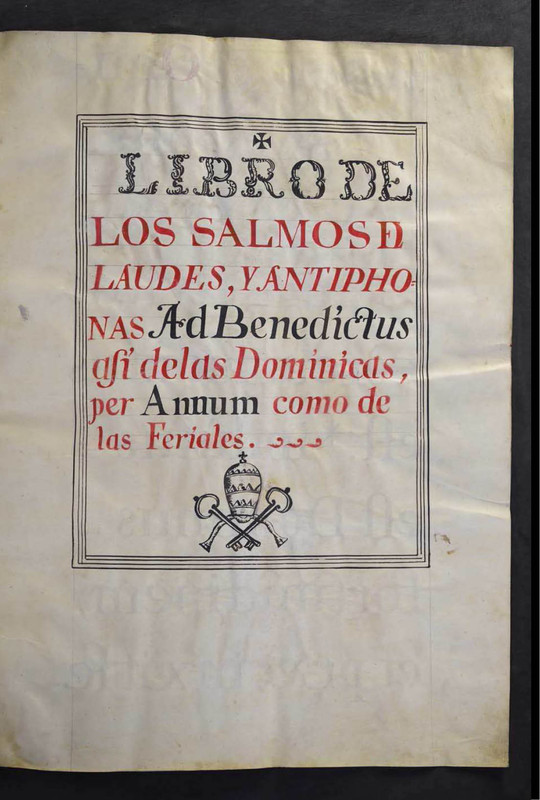 LIBRO DE
LOS SALMOS DE
LAUDES, Y ANTIPHO-
NAS Ad Benedictus
aſi de las Dominicas,
per Annum como de
las Feriales.